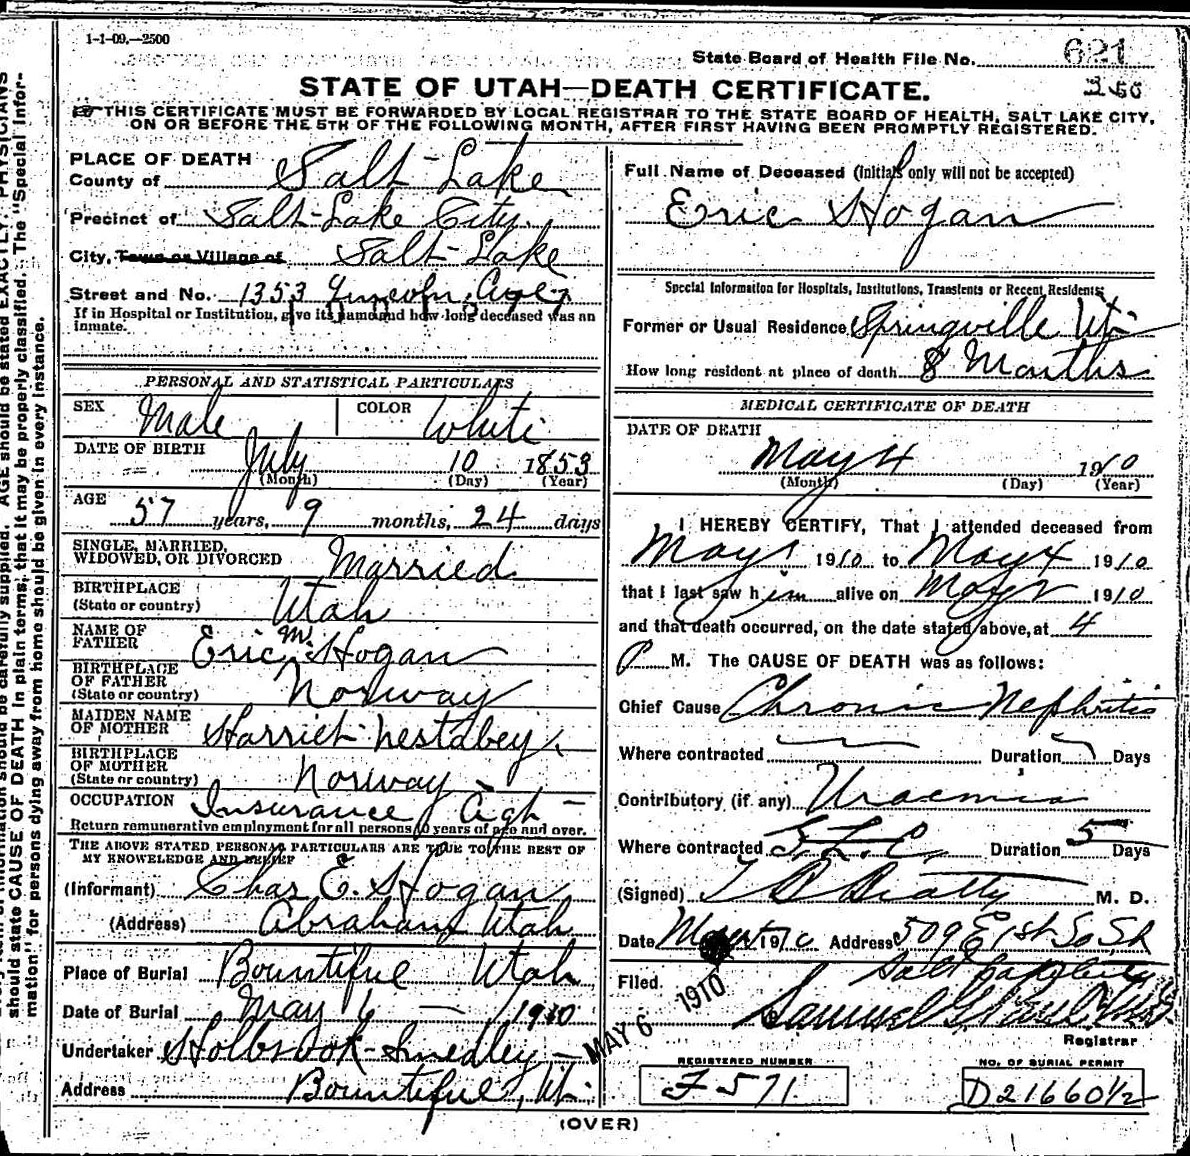 1-1-09.—2500
State Board of Health File No. 621
STATE OF UTAH—DEATH CERTIFICATE.
THIS CERTIFICATE MUST BE FORWARDED BY LOCAL REGISTRAR TO THE STATE BOARD OF HEALTH, SALT LAKE CITY,
ON OR BEFORE THE 5TH OF THE FOLLOWING MONTH, AFTER FIRST HAVING BEEN PROMPTLY REGISTERED.
PLACE OF DEATH
County of Salt Lake
Precinct of Salt Lake City
City, Town or Village of Salt Lake
Street and No. 1353 Lincoln
If in Hospital or Institution, give its name and how long deceased was an
inmate.
PERSONAL AND STATISTICAL PARTICULARS
SEX Male COLOR White
DATE OF BIRTH July 10 1853
(Month) (Day) (Year)
AGE 57 years, 9 months, 24 days
SINGLE, MARRIED,
WIDOWED, OR DIVORCED Married
BIRTHPLACE
(State or country) Utah
NAME OF
FATHER Eric M. Hogan
BIRTHPLACE
OF FATHER
(State or country) Norway
MAIDEN NAME
OF MOTHER Harriet Nestabey
BIRTHPLACE
OF MOTHER
(State or country) Norway
OCCUPATION Insurance Agt
Return remunerative employment for all persons 10 years of age and over.
THE ABOVE STATED PERSONAL PARTICULARS ARE TRUE TO THE BEST OF
MY KNOWLEDGE AND BELIEF
(Informant) Chas E. Hogan
(Address) Abraham Utah
Place of Burial Bountiful Utah
Date of Burial May 6 — 1910
Undertaker Holbrook-Smedley
Address Bountiful, Ut.
Full Name of Deceased (Initials only will not be accepted)
Eric Hogan
Special Information for Hospitals, Institutions, Transients or Recent Residents:
Former or Usual Residence Springville Ut
How long resident at place of death 8 Months
MEDICAL CERTIFICATE OF DEATH
DATE OF DEATH
May 4 1910
(Month) (Day) (Year)
I HEREBY CERTIFY, That I attended deceased from
May 1 1910 to May 4 1910
that I last saw him alive on May 1910
and that death occurred, on the date stated above, at 4
P M. The CAUSE OF DEATH was as follows:
Chief Cause Chronic Nephritis
Where contracted Duration Days
Contributory (if any) Uraemia
Where contracted S. L. C. Duration 5 Days
(Signed) T B Beatty M. D.
Date 1910 Address 509 E 1st So St
Salt Lake City
Filed. MAY 6 1910
Samuel G. Paul
Registrar
REGISTERED NUMBER
F 571
NO. OF BURIAL PERMIT
D21660½
(OVER)